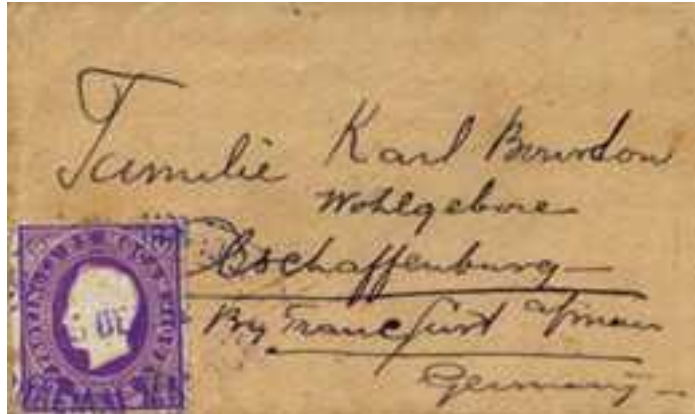 Familie Karl Bourdon
Wohlgebore
Aschaffenburg
By Francfurt a/main
Germany